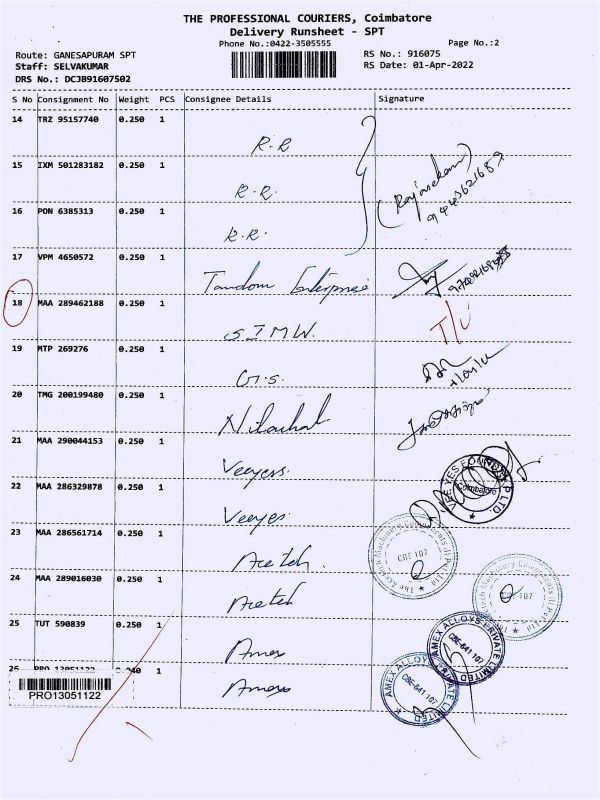 THE PROFESSIONAL COURIERS, Coimbatore
Delivery Runsheet - SPT
Phone No.:0422-3505555 Page No.:2
Route: GANESAPURAM SPT RS No.: 916075
Staff: SELVAKUMAR RS Date: 01-Apr-2022
DRS No.: DCJB91607502
S No Consignment No Weight PCS Consignee Details Signature
14 TRZ 95157740 0.250 1 R.R
15 IXM 501283182 0.250 1 R.R.
16 PON 6385313 0.250 1 R.R.
(Rajasekaran)
17 VPM 4650572 0.250 1 Tandom Enterprise
18 MAA 289462188 0.250 1 S.I.M.W.
19 MTP 269276 0.250 1 G.S.
20 TMG 200199480 0.250 1 Nilachal
21 MAA 290044153 0.250 1 Veeyess
22 MAA 286329878 0.250 1 Veeyes
VEE YES FOUNDRY P LTD.
Coimbatore
23 MAA 286561714 0.250 1 Acetech
CBE 107
24 MAA 289016030 0.250 1 Acetech
CBE 107
25 TUT 590839 0.250 1 Amex
AMEX ALLOYS PRIVATE LIMITED
CBE-641 107
26 PRO 13051122 1 Amex
AMEX ALLOYS PRIVATE LIMITED
CBE-641 107
PRO13051122